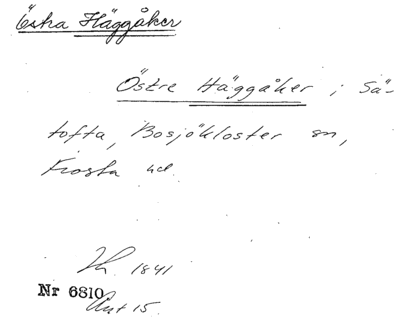 Östra Häggåker
Östre Häggåker i Sä-
tofta, Bosjökloster sn,
Frosta hd.
1841
Nr 6810
15.